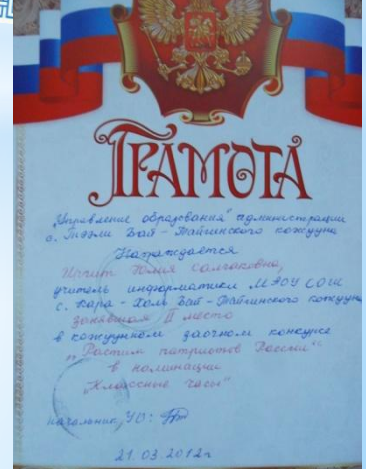 ГРАМОТА
"Управление образования" администрации
с. Тээли Бай-Тайгинского кожууна
Награждается
Иргит Юлия Салчаковна,
учитель информатики МАОУ СОШ
с. Кара-Холь Бай-Тайгинского кожууна
занявшая II место
в кожуунном заочном конкурсе
"Растим патриотов России"
в номинации
"Классные часы"
начальник УО:
21.03.2012г